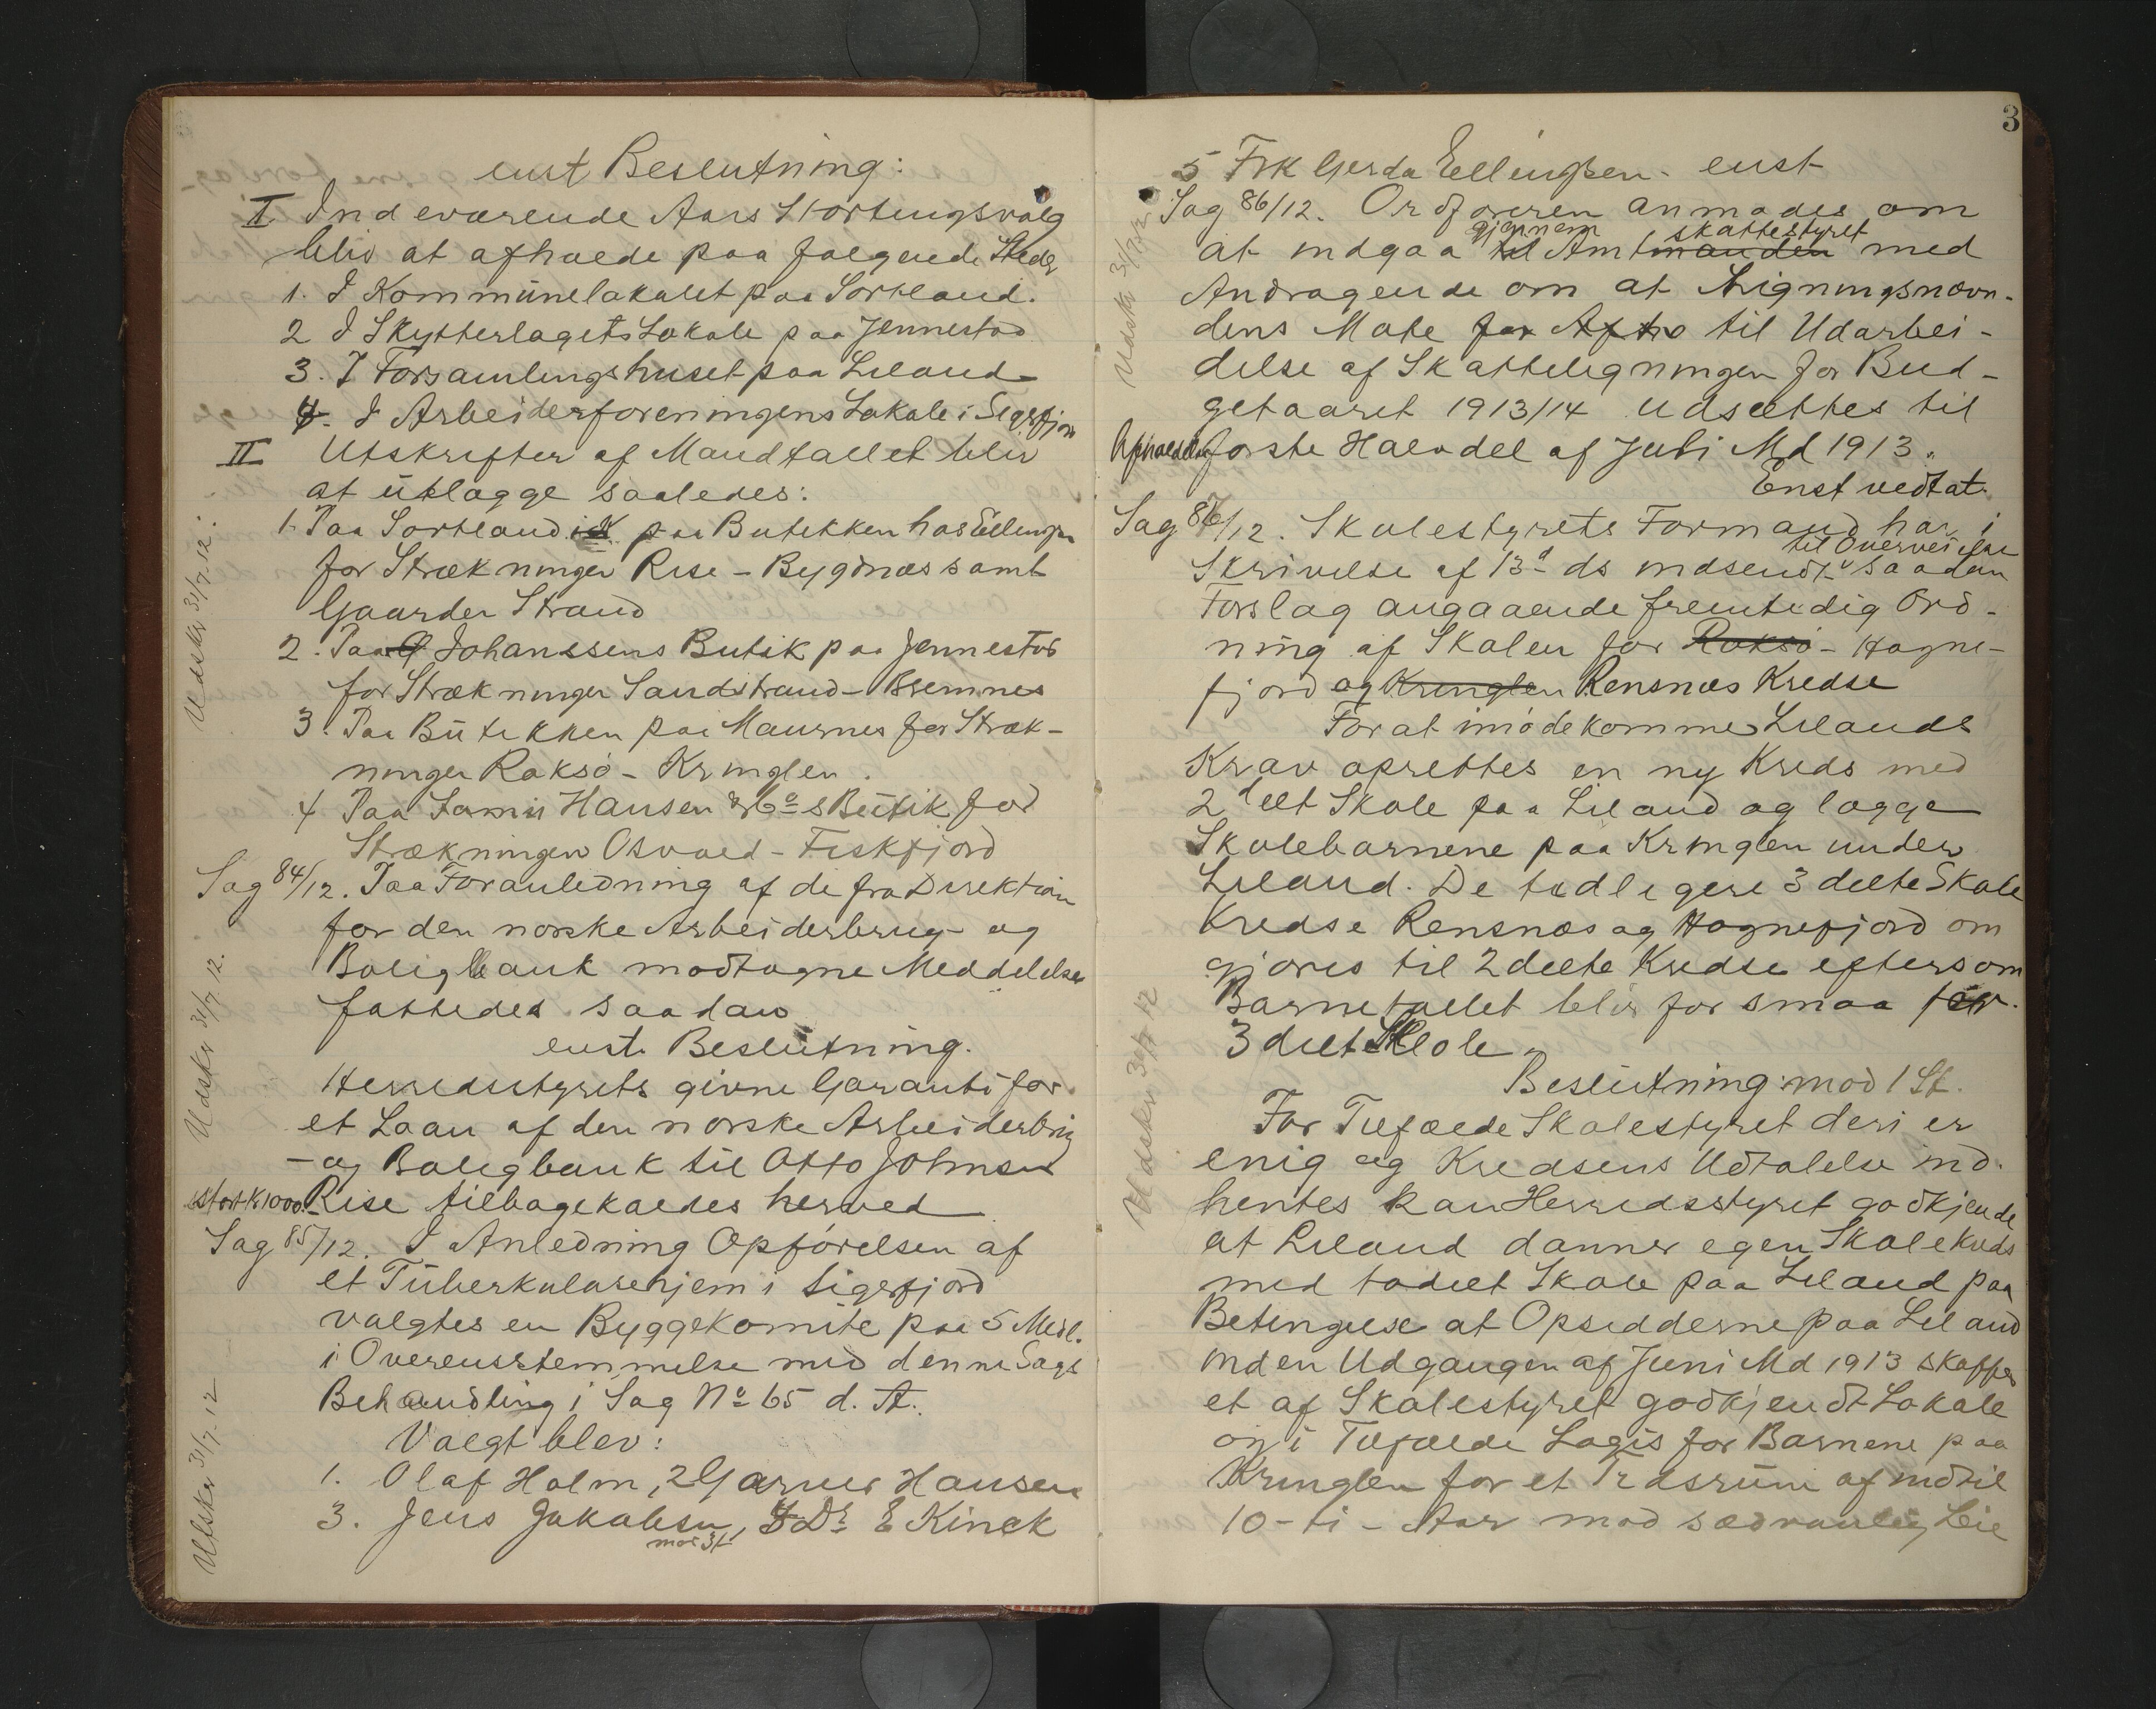 enst Beslutning:
I Indeværende Aars Stortingsvalg
bliv at afholde paa følgende Steder
1. I Kommunelokalet paa Sortland.
2 I Skytterlagets Lokale paa Jennestad
3. I Forsamlingshuset paa Liland
4. I Arbeiderforeningens Lokale i Sigerfjord
II Utskrifter af Mandtallet bliv
at utlægge saaledes:
1. Paa Sortland paa Butikken hos Ellingsen
for Strækningen Rise - Bygdnæs samt
Gaarden Strand
2. Paa Johanssens Butik paa Jennestad
for Strækningen Sandstrand - Bremnes
3. Paa Butikken paa Maurnes for Stræk-
ningen Roksø - Kringlen.
4 Paa Hansen & Co s Butik for
Strækningen Osvold - Fiskfjord
Sag 84/12. Paa Foranledning af de fra Direktion
for den norske Arbeiderbrug- og
Boligbank modtagne Meddelelse
fattedes saadan
enst. Beslutning.
Herredsstyrets givne Garanti for
et Laan af den norske Arbeiderbrug
- og Boligbank til Otto Johnsen
stort k 1000.- Rise tilbagekaldes herved
Sag 85/12. I Anledning Opførelsen af
et Tuberkulosehjem i Sigerfjord
valgtes en Byggekomite paa 5 Medl.
i Overensstemmelse med denne Sags
Behandling i Sag No 65 d. A.
Valgt blev:
1. Olaf Holm, 2 Garner Hansen
3. Jens Jakobsen, 4 Dr E Kinck
mod 3 st
Udskr 31/7 12.
Udskr 31/7 12.
Utskr 31/7. 12
3
5 Frk Gerda Ellingsen - enst
Sag 86/12. Ordføreren anmodes om
gjennem skattestyret
at indgaa til Amtmanden med
Andragende om at Ligningsnævn-
dens Møte for til Udarbei-
delse af Skatteligningen for Bud-
getaaret 1913/14 udsættes til
Afholdelse første Halvdel af Juli Md 1913.
Enst vedtat.
Sag 87/12. Skolestyrets Formand har i
til Overveielse
Skrivelse af 13d ds indsendt saadan
Forslag angaaende fremtidig Ord-
ning af Skolen for Roksø - Hogne-
fjord og Kringlen Rensnæs Kredse
For at imødekomme Lilands
Krav oprettes en ny Kreds med
2 delt Skole paa Liland og lægge
Skolebarnene paa Kringlen under
Liland. De tidligere 3 delte Skole
Kredse Rensnæs og Hognefjord om
gjøres til 2 delte Kredse eftersom
Barnetallet blir for smaa for
3 delt Skole.
Beslutning: mod 1 St.
For Tilfælde Skolestyret deri er
enig og Kredsens Udtalelse ind-
hentes kan Herredsstyret godkjende
at Liland danner egen Skolekreds
med todelt Skole paa Liland paa
Betingelse at Opsidderne paa Liland
inden Udgangen af Juni Md 1913 skaffer
et af Skolestyret godkjendt Lokale
og i Tilfælde Logis for Barnene paa
Kringlen for et Tidsrum af indtil
10 - ti - Aar mod sædvanlig Leie
Udskr 31/7 12
Udskr 31/7 12